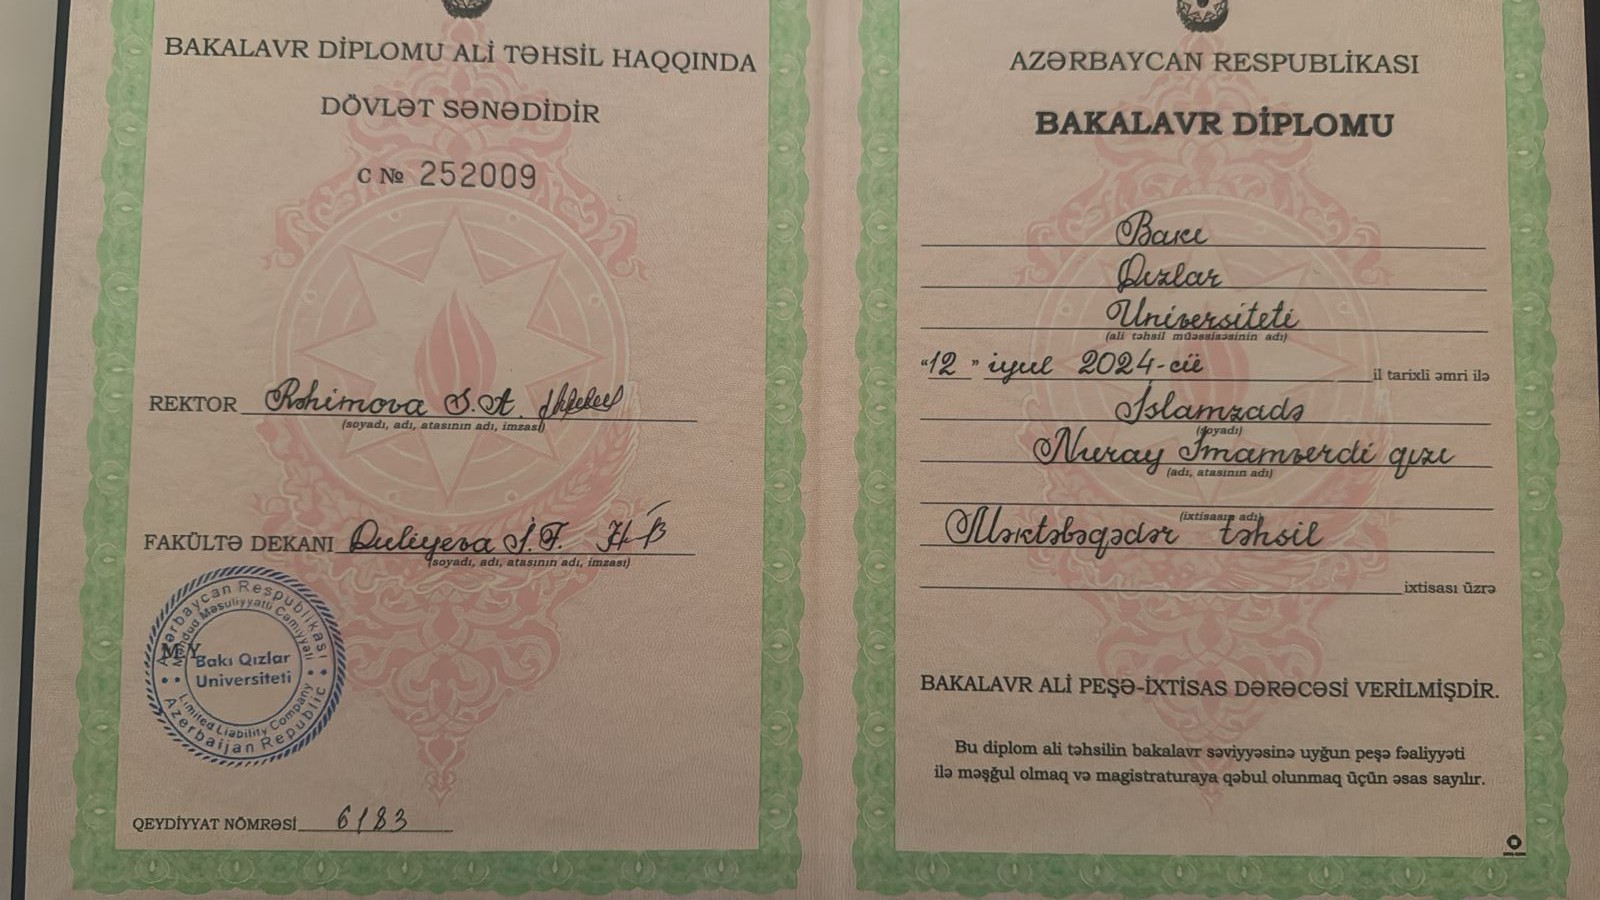 BAKALAVR DİPLOMU ALİ TƏHSİL HAQQINDA
DÖVLƏT SƏNƏDİDİR
C № 252009
REKTOR Rəhimova S.A.
(soyadı, adı, atasının adı, imzası)
FAKÜLTƏ DEKANI Quliyeva İ.F.
(soyadı, adı, atasının adı, imzası)
Azərbaycan Respublikası
Məhdud Məsuliyyətli Cəmiyyəti
M Y
Bakı Qızlar
Universiteti
Limited Liability Company
Azerbaijan Republic
QEYDİYYAT NÖMRƏSİ 6183
AZƏRBAYCAN RESPUBLİKASI
BAKALAVR DİPLOMU
Bakı
Qızlar
Universiteti
(ali təhsil müəssisəsinin adı)
“12” iyul 2024-cü il tarixli əmri ilə
İslamzadə
(soyadı)
Nuray İmamverdi qızı
(adı, atasının adı)
(ixtisasın adı)
Məktəbəqədər təhsil
ixtisası üzrə
BAKALAVR ALİ PEŞƏ-İXTİSAS DƏRƏCƏSİ VERİLMİŞDİR.
Bu diplom ali təhsilin bakalavr səviyyəsinə uyğun peşə fəaliyyəti
ilə məşğul olmaq və magistraturaya qəbul olunmaq üçün əsas sayılır.